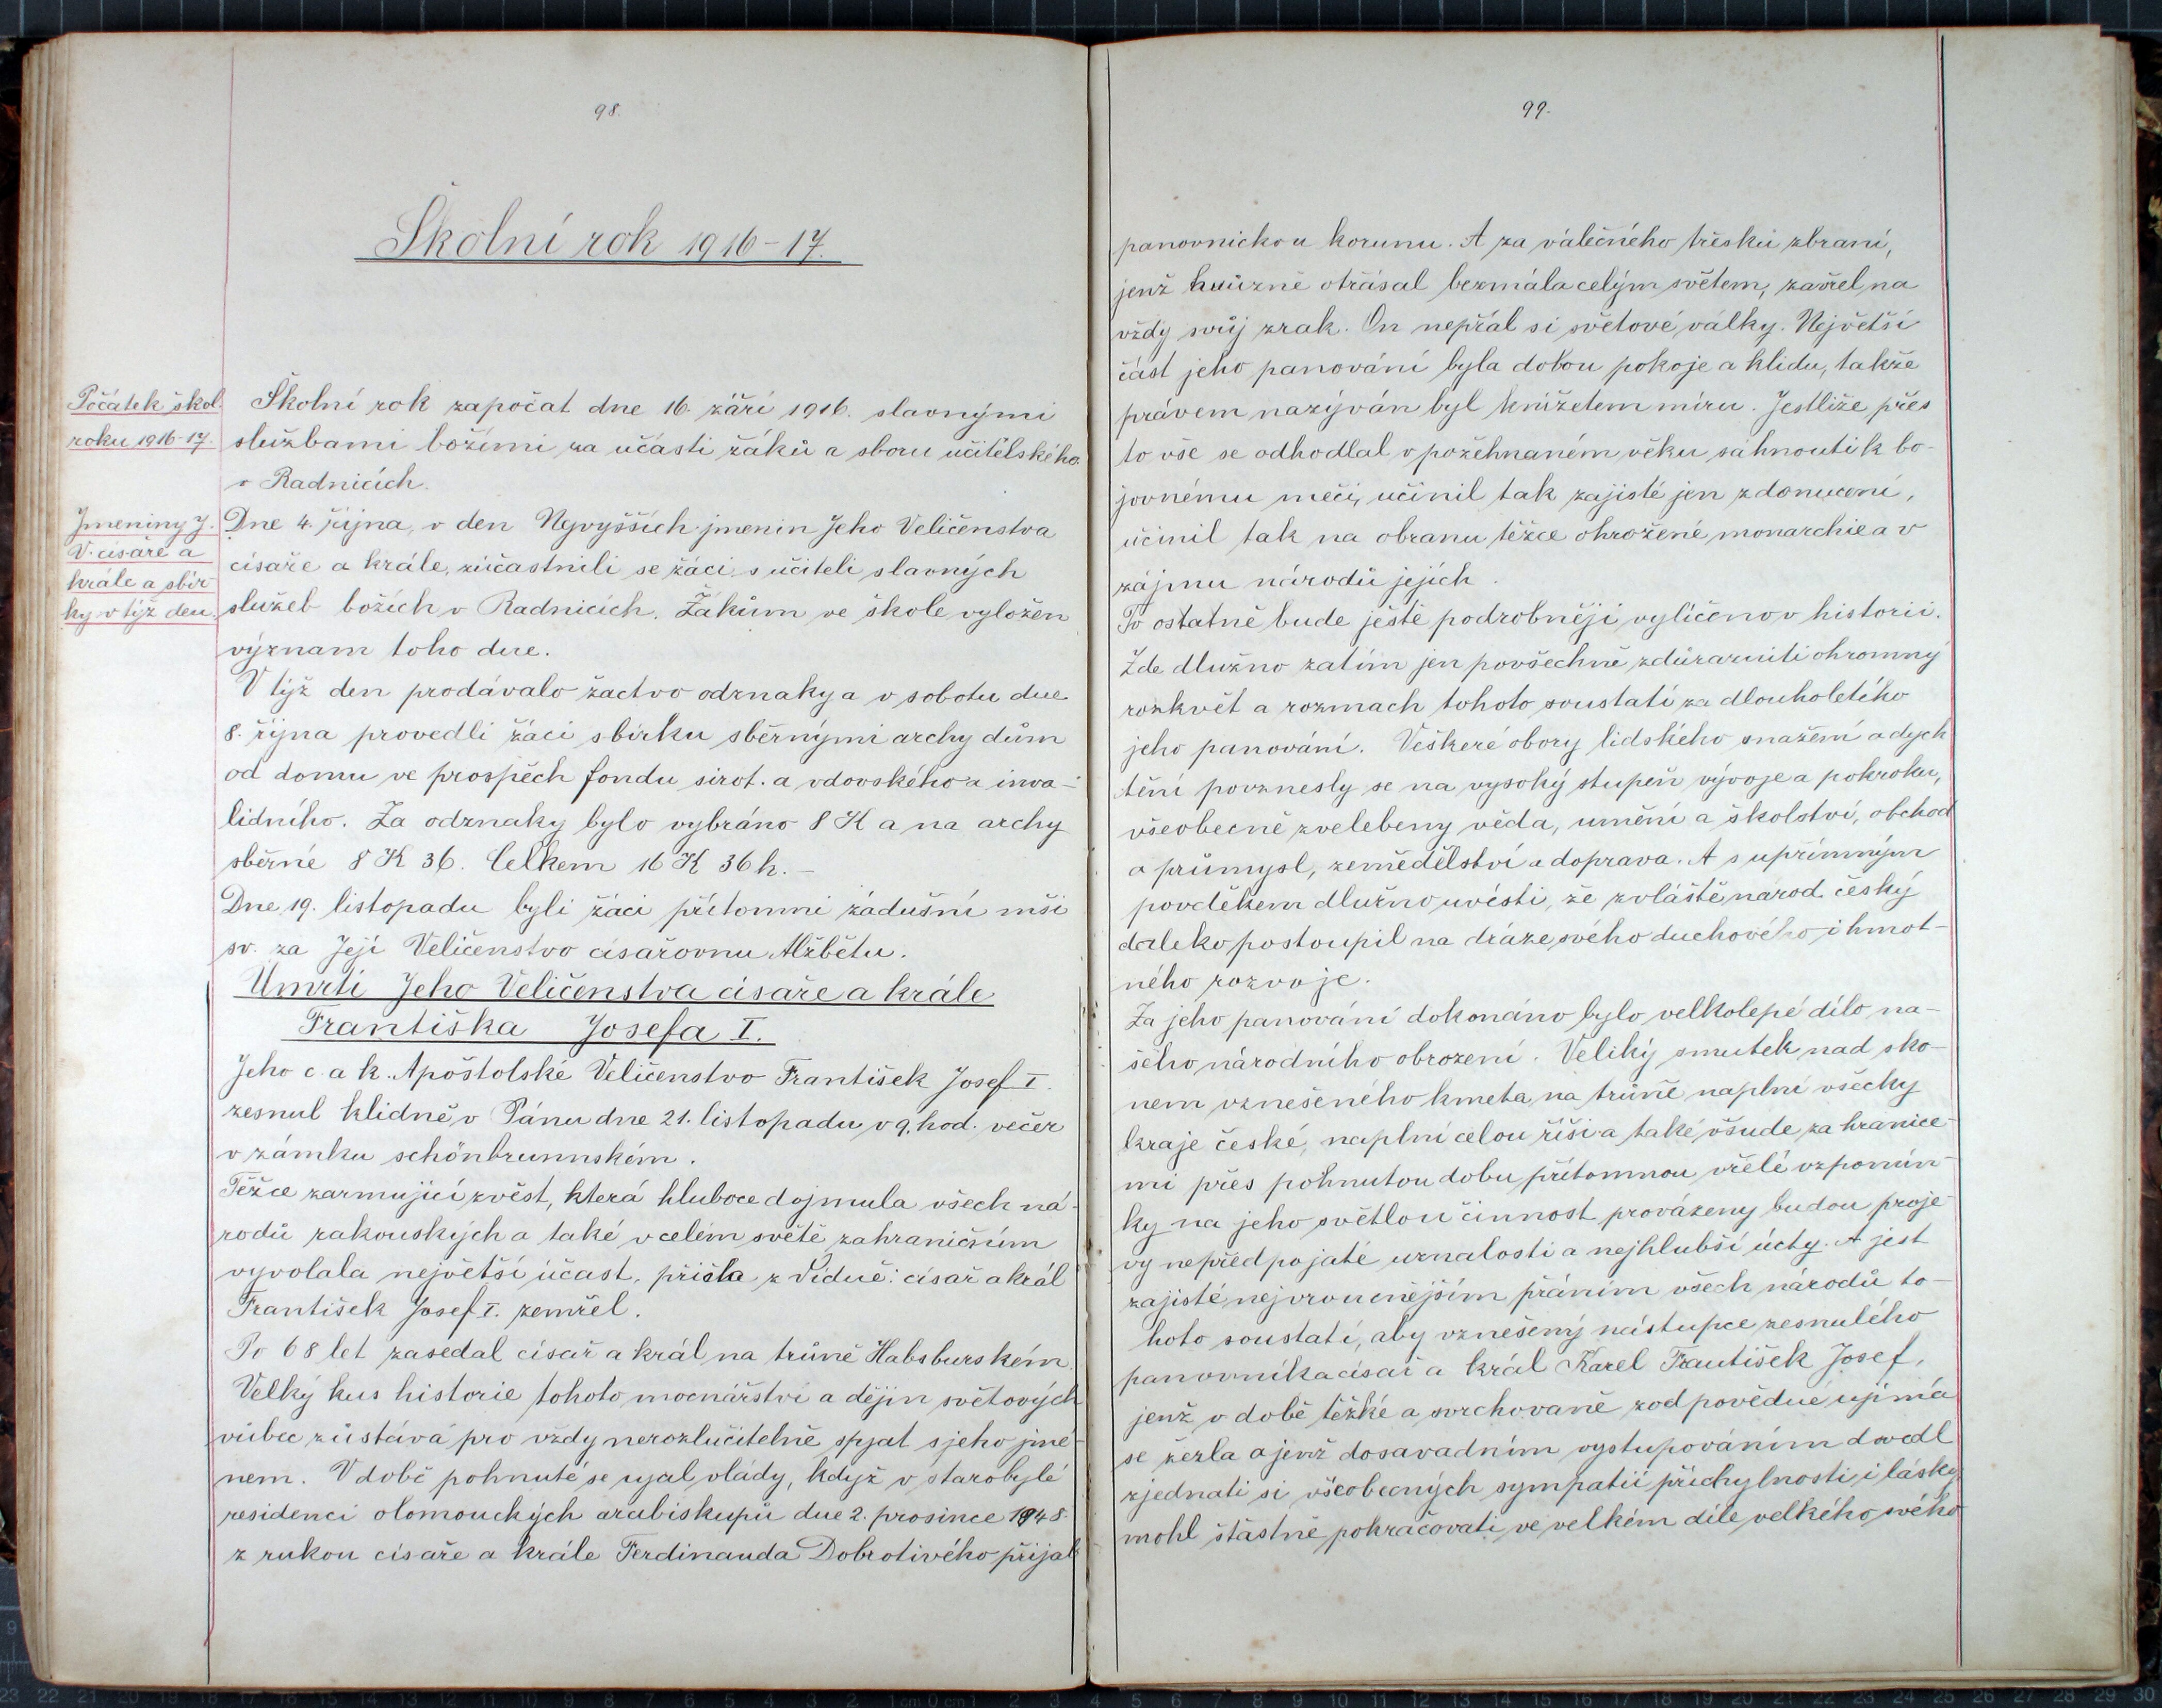 98.
Školní rok 1916-17.
Počátek škol.
roku 1916-17.
Školní rok započat dne 16. září 1916. slavnými
službami božími za účasti žáků a sboru učitelského
v Radnicích.
Jmeniny J.
V. císaře a
krále a sbír
ky v týž den.
Dne 4. října, v den Nejvyšších jmenin Jeho Veličenstva
císaře a krále, zúčastnili se žáci s učiteli slavných
služeb božích v Radnicích. Žákům ve škole vyložen
význam toho dne.
V týž den prodávalo žactvo odznaky a v sobotu dne
8. října provedli žáci sbírku sběrnými archy dům
od domu ve prospěch fondu sirot. a vdovského a inva-
lidního. Za odznaky bylo vybráno 8 K a na archy
sběrné 8 K 36. Celkem 16 K 36 h. –
Dne 19. listopadu byli žáci přítomni zádušní mši
sv. za Její Veličenstvo císařovnu Alžbětu.
Úmrtí Jeho Veličenstva císaře a krále
Františka Josefa I.
Jeho c. a k. Apoštolské Veličenstvo František Josef I.
zesnul klidně v Pánu dne 21. listopadu v 9. hod. večer
v zámku schönbrunnském.
Těžce zarmující zvěst, která hluboce dojmula všech ná-
rodů rakouských a také v celém světě zahraničním
vyvolala největší účast, přišla z Vídně: císař a král
František Josef I. zemřel.
Po 68 let zasedal císař a král na trůně Habsburském.
Velký kus historie tohoto mocnářství a dějin světových
vůbec zůstává pro vždy nerozlučitelně spjat s jeho jmé-
nem. V době pohnuté se ujal vlády, když v starobylé
residenci olomouckých arcibiskupů dne 2. prosince 1948.
z rukou císaře a krále Ferdinanda Dobrotivého přijal
99.
panovnickou korunu. A za válečného třesku zbraní,
jenž hrůzně otřásal bezmála celým světem, zavřel na
vždy svůj zrak. On nepřál si světové války. Největší
část jeho panování byla dobou pokoje a klidu, takže
právem nazýván byl knížetem míru. Jestliže přes
to vše se odhodlal v požehnaném věku sáhnouti k bo-
jovnému meči, učinil tak zajisté jen z donucení,
učinil tak na obranu těžce ohrožené monarchie a v
zájmu národů jejích.
To ostatně bude ještě podrobněji vylíčeno v historii.
Zde dlužno zatím jen povšechně zdůrazniti ohromný
rozkvět a rozmach tohoto soustátí za dlouholetého
jeho panování. Veškeré obory lidského snažení a dych
tění povznesly se na vysoký stupeň vývoje a pokroku,
všeobecně zvelebeny věda, umění a školství, obchod
a průmysl, zemědělství a doprava. A s upřímným
povděkem dlužno uvésti, že zvláště národ český
daleko postoupil na dráze svého duchového i hmot-
ného rozvoje.
Za jeho panování dokonáno bylo velkolepé dílo na-
šeho národního obrození. Veliký smutek nad sko-
nem vznešeného kmeta na trůně naplní všecky
kraje české, naplní celou říši a také všude za hranice-
mi přes pohnutou dobu přítomnou vřelé vzpomín-
ky na jeho světlou činnost provázeny budou proje-
vy nepředpojaté uznalosti a nejhlubší úcty. A jest
zajisté nejvroucnějším přáním všech národů to-
hoto soustátí, aby vznešený nástupce zesnulého
panovníka císař a král Karel František Josef,
jenž v době těžké a svrchovaně zodpovědné ujímá
se žezla a jenž dosavadním vystupováním dovedl
zjednati si všeobecných sympatií příchylnosti i lásky
mohl šťastně pokračovati ve velkém díle velkého svého